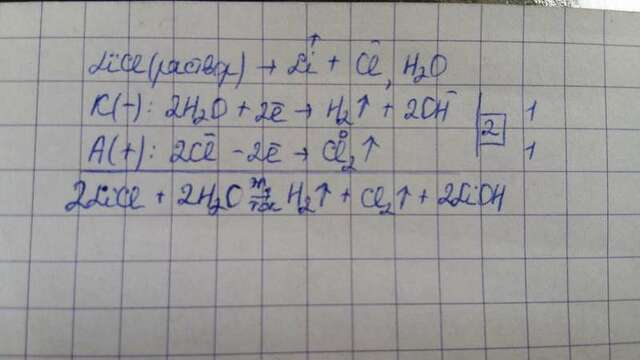 LiCl(раствор) → Li⁺ + Cl⁻, H₂O
K(-): 2H₂O + 2ē → H₂↑ + 2OH⁻ | 2 | 1
A(+): 2Cl⁻ - 2ē → Cl₂⁰↑ | 1
2LiCl + 2H₂O эл. ток = H₂↑ + Cl₂↑ + 2LiOH